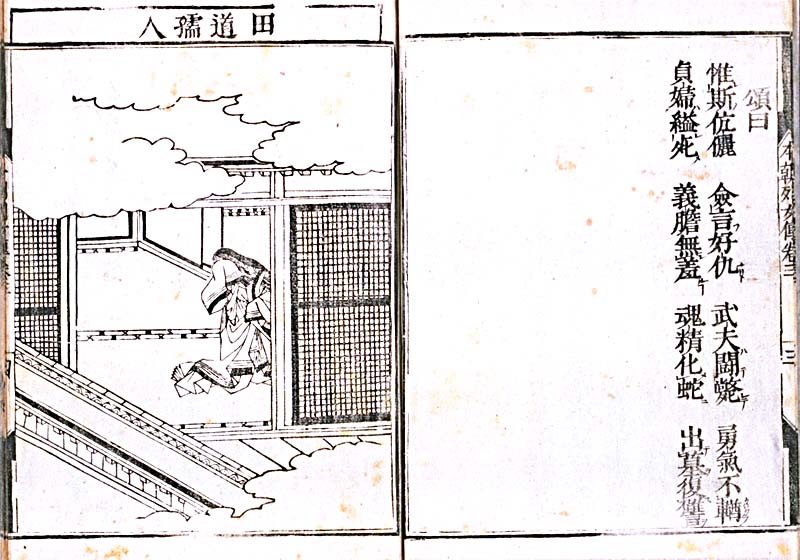 頌曰
惟斯伉儷 僉言好仇 武夫鬪斃 勇氣不輶
貞婦縊死 義膽無羞 魂精化蛇 出墓復讐
本朝列女傳卷三
三
田道孺人
四